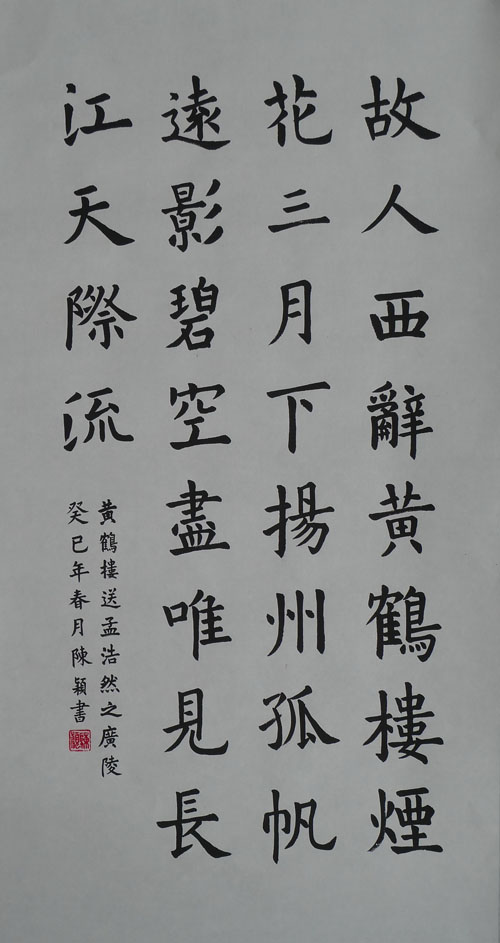 故人西辭黃鶴樓煙
花三月下揚州孤帆
遠影碧空盡唯見長
江天際流
黃鶴樓送孟浩然之廣陵
癸巳年春月陳穎書